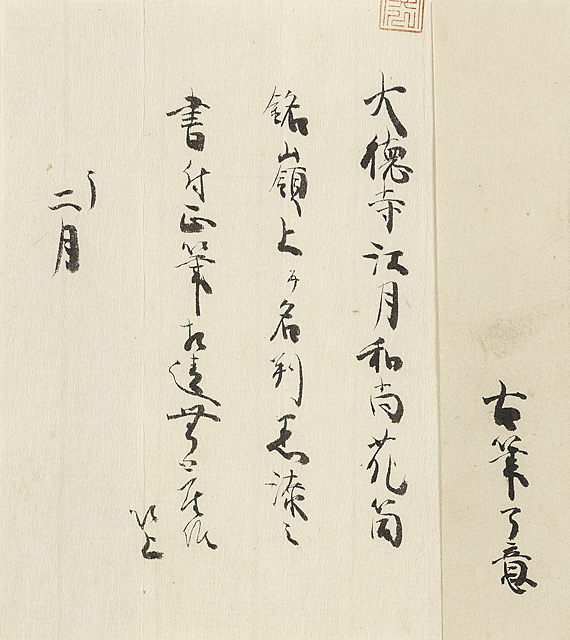 古筆了意
大徳寺江月和尚花筒
銘嶺上ヶ名判黒漆ニ
書付正筆相違無之候
以上
二月